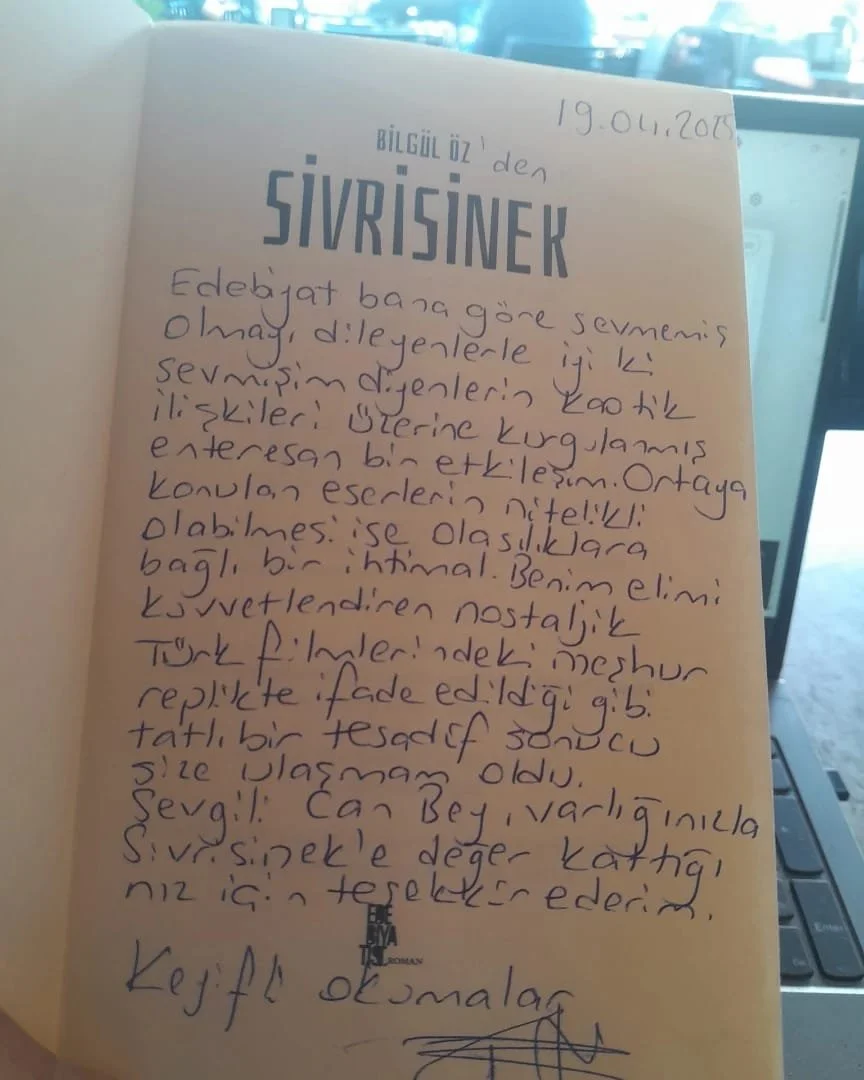 19.04.2025
BİLGÜL ÖZ'den
SİVRİSİNEK
Edebiyat bana göre sevmemiş
olmayı dileyenlerle iyi ki
sevmişim diyenlerin kaotik
ilişkileri üzerine kurgulanmış
enteresan bir etkileşim. Ortaya
konulan eserlerin nitelikli
olabilmesi ise olasılıklara
bağlı bir ihtimal. Benim elimi
kuvvetlendiren nostaljik
Türk filmlerindeki meşhur
replikte ifade edildiği gibi
tatlı bir tesadüf sonucu
size ulaşmam oldu.
Sevgili Can Bey, varlığınızla
Sivrisinek'e değer kattığı
nız için teşekkür ederim.
EDE
BİYA
TİST
ROMAN
Keyifli okumalar
Enter